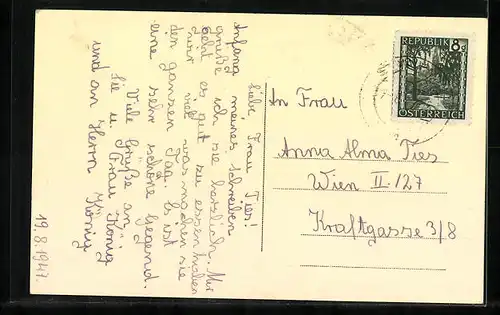 Liebe Frau Ties!
Anfang meines schreiben
grüße ich sie herzlich. Mir
geht es gut zu essen haben
wir viel was machen sie
den ganzen Tag. Es ist
eine sehr schöne Gegend.
Viele Grüße an
Sie u. Frau König
und an Herrn König
19.8.1947.
REPUBLIK 8
ÖSTERREICH
An Frau
Anna Alma Ties
Wien II./27
Kraftgasse 3/8